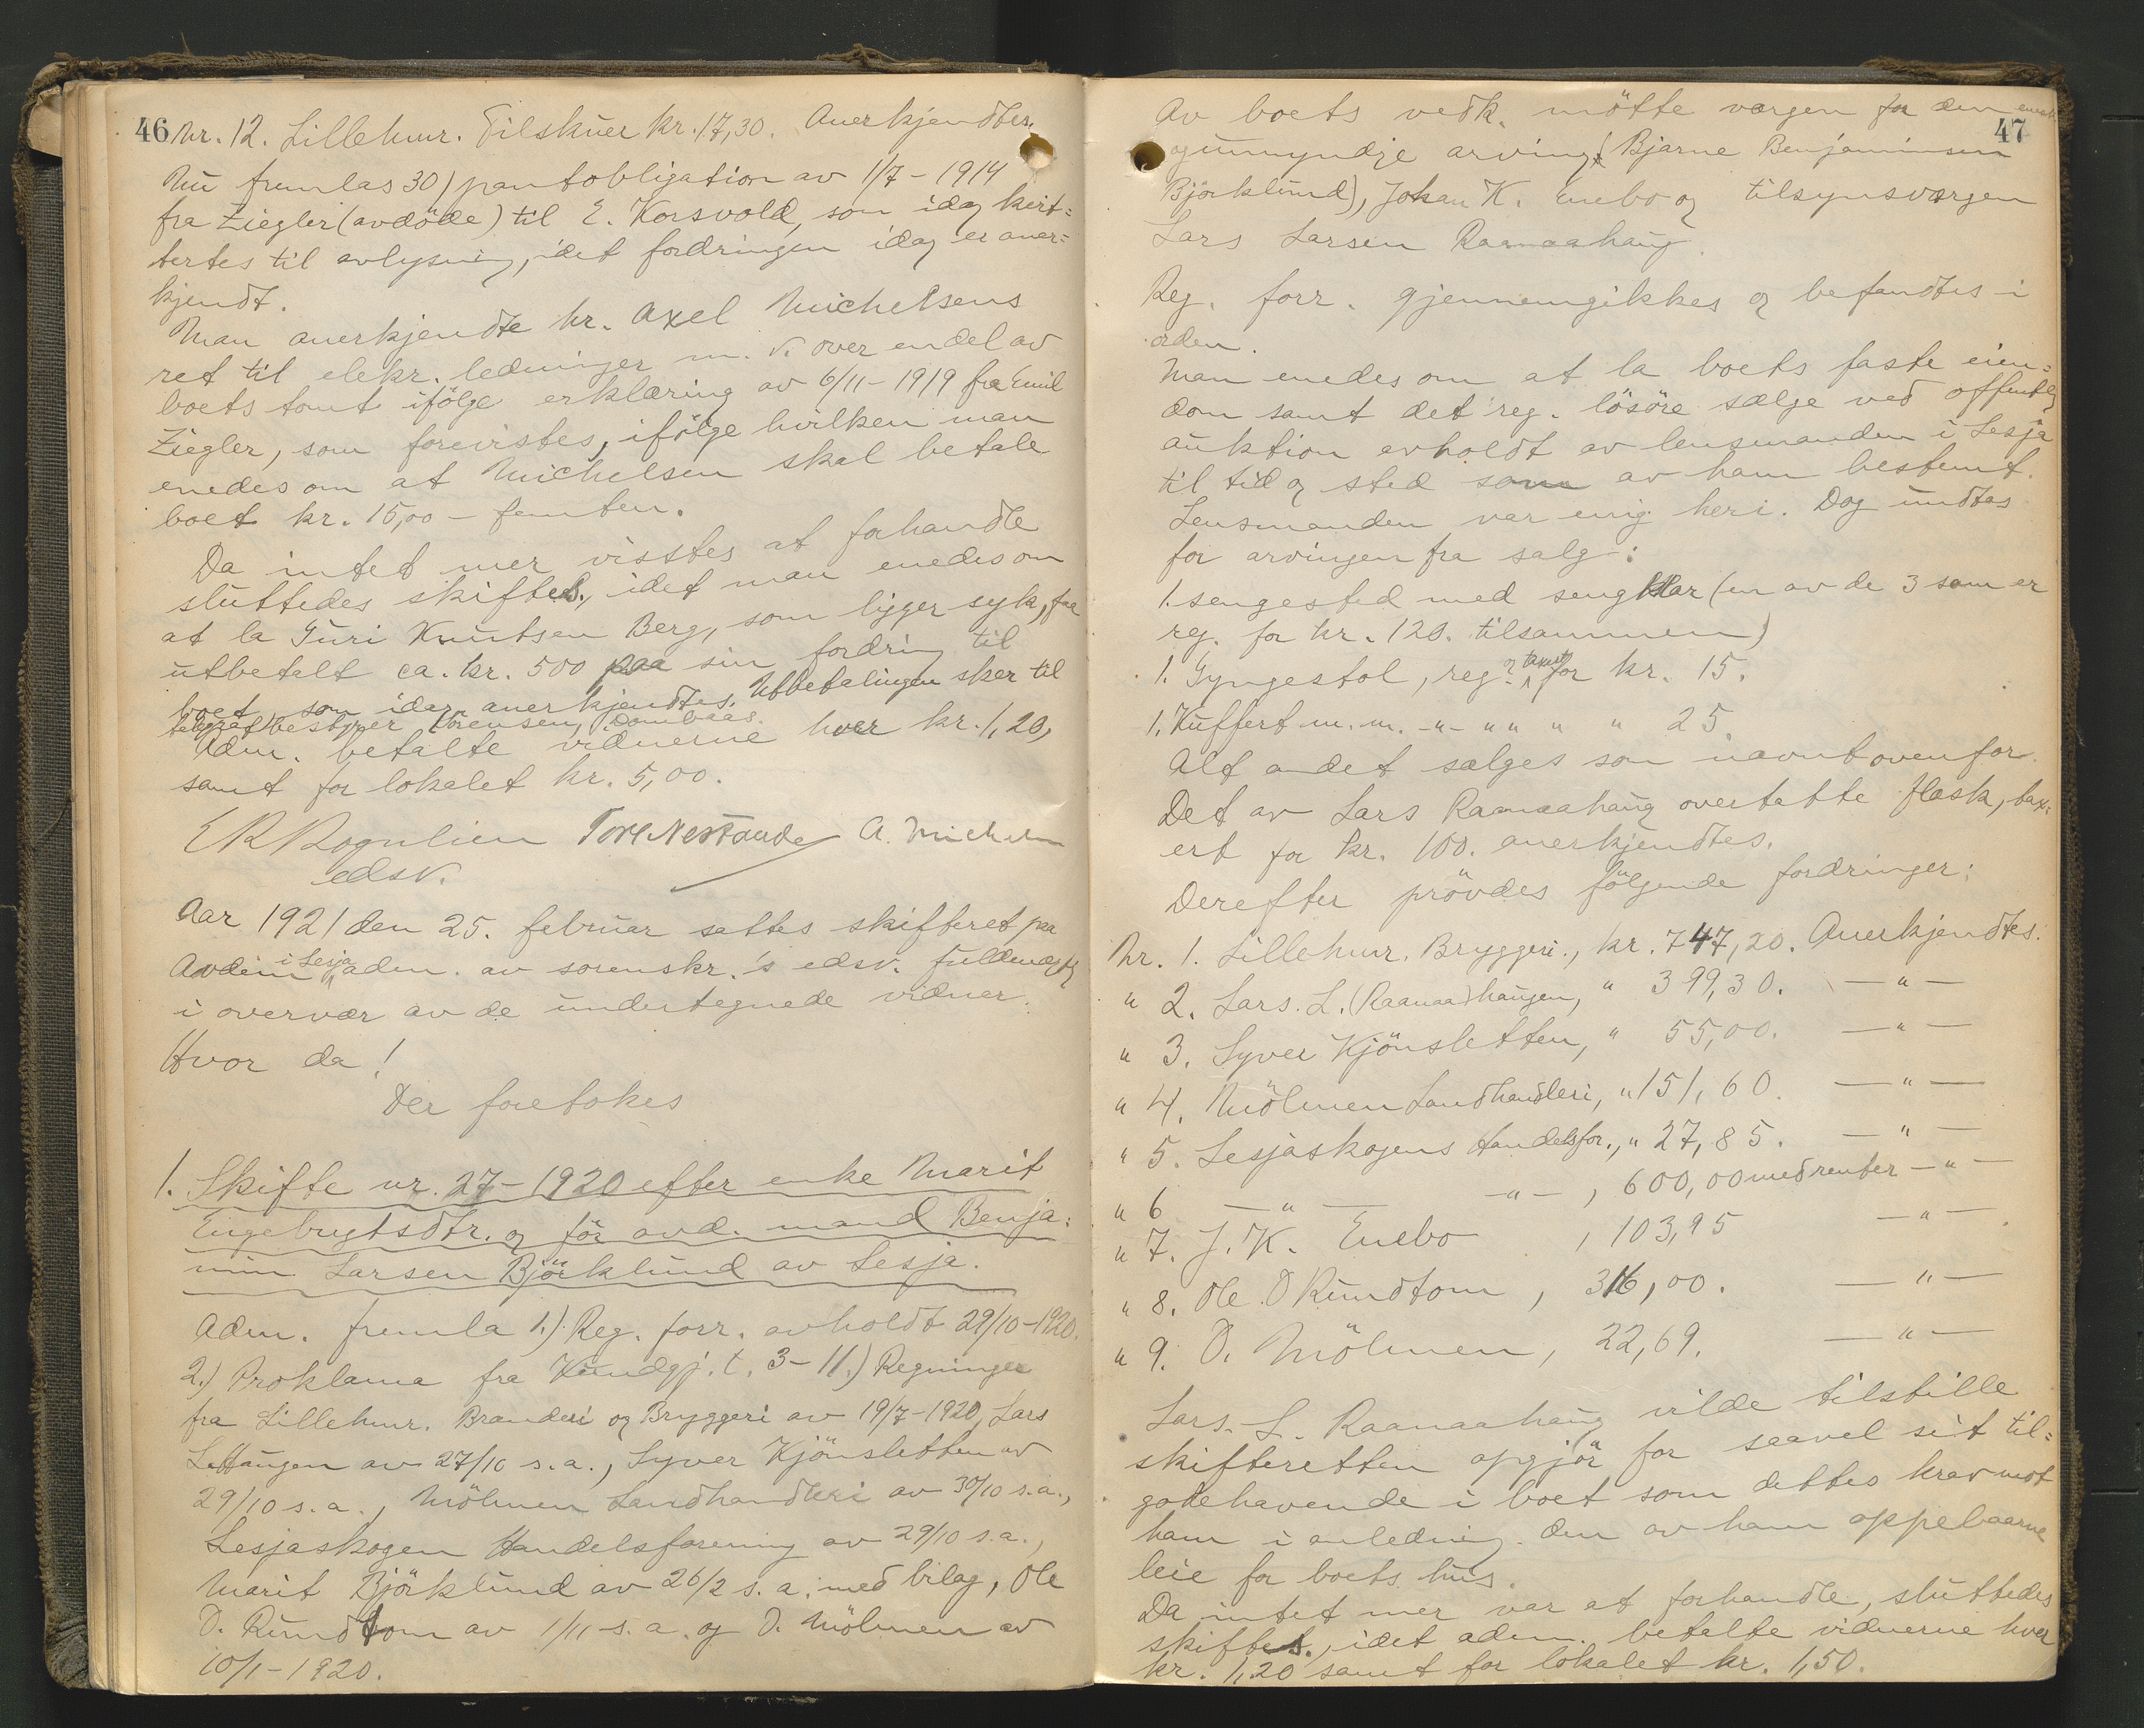 46 Nr. 12. Lillehmr. Tilskuer kr. 17,30. Anerkjendtes.
Nu fremlas 30) pantobligation av 1/7 - 1914
fra Ziegler (avdöde) til E. Korsvold, som idag kvit=
tertes til avlysning, idet fordringen idag er aner=
kjendt.
Man anerkjendte hr. Axel Michelsens
ret til elekr. ledninger m. v. over endel av
boets tomt ifölge erklæring av 6/11 - 1919 fra Emil
Ziegler, som forevistes, ifölge hvilken man
enedes om at Michelsen skal betale
boet kr. 15,00 - femten.
Da intet mer visstes at forhandle
sluttedes skiftes., idet man enedes om
at la Guri Knutsen Berg, som ligger syk, faa
utbetalt ca. kr. 500 paa sin fordring til
boet, som idag anerkjendtes. Utbetalingen sker til
telegrafbestyrer Sörensen, Dombaas.
Adm. betalte vidnerne hver kr. 1,20,
samt for lokalet kr. 5,00.
E R Rognlien Tore Nestande A. Michelsen
edsv.
Aar 1921 den 25. februar sattes skifteret paa
Avdem i Lesja adm. av sorenskr.'s edsv. fuldmægtig
i overvær av de undertegnede vidner.
Hvor da!
Der foretokes
1. Skifte nr. 27 - 1920 efter enke Marit
Engebrigtsdtr. og för avd. mand Benja=
min Larsen Björklund av Lesja.
Adm. fremla 1.) Reg. forr. avholdt 29/10 - 1920.
2.) Proklama fra Kundgj. t. 3 - 11.) Regninger
fra Lillehmr. Brænderi og Bryggeri av 19/7 - 1920, Lars
L. Haugen av 27/10 s. a., Syver Kjönsletten av
29/10 s. a., Mölmen Landhandleri av 30/10 s. a.,
Lesjaskogen Handelsforening av 29/10 s. a.,
Marit Björklund av 26/2 s. a. med bilag, Ole
O. Rundtom av 1/11 s. a. og O. Mölmen av
10/1 - 1920.
47
Av boets vedk. mötte værgen for den eneste
og umyndige arving (Bjarne Benjaminsen
Björklund), Johan K. Enebo og tilsynsværgen
Lars Larsen Raanaahaug.
Reg. forr. gjennemgikkes og befandtes i
orden.
Man enedes om at la boets faste eien=
dom samt det reg. lösöre sælge ved offentlig
auktion avholdt av lensmanden i Lesja
til tid og sted som av ham bestemt.
Lensmanden var enig heri. Dog undtas
for arvingen fra salg:
1. sengested med sengklær (en av de 3 som er
reg. for kr. 120. tilsammen)
1. Gyngestol, reg. og takst for kr. 15.
1. Kuffert m. m. -"- " " " " 25.
Alt andet sælges som nævnt ovenfor.
Det av Lars Raanaahaug overtatte flæsk, tax=
ert for kr. 100. anerkjendtes.
Derefter prövdes fölgende fordringer:
Nr. 1. Lillehmr. Bryggeri., kr. 747,20. Anerkjendtes.
" 2. Lars. L. (Raanaa)haugen, " 399,30. — " —
" 3. Syver Kjönsletten, " 55,00. — " —
" 4. Mölmen Landhandleri, " 151,60. — " —
" 5. Lesjaskogens Handelsfor., " 27,85. — " —
" 6 — " — — " —, 600,00 med renter — " —
" 7. J. K. Enebo , 103,95 — " —.
" 8. Ole O Rundtom , 316,00. — " —
" 9. O. Mölmen , 22,69. — " —
Lars. L. Raanaahaug vilde tilstille
skifteretten opgjör for saavel sit til=
godehavende i boet som dettes krav mot
ham i anledning den av ham oppebaarne
leie for boets hus.
Da intet mer var at forhandle, sluttedes
skiftes., idet adm. betalte vidnerne hver
kr. 1,20 samt for lokalet kr. 1,50.